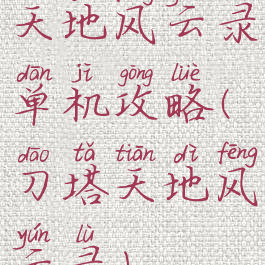 天地风云录
dān jī gōng lüè
单机攻略(
dāo tǎ tiān dì fēng
刀塔天地风
yún lù
云录)